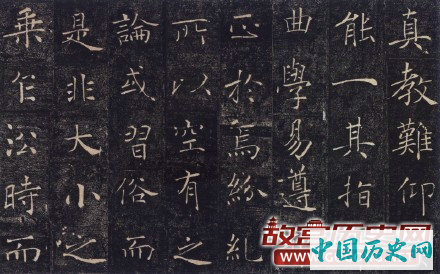 真教難仰
能一其指
曲學易遵
正於焉紛糺
所以空有之
論或習俗而
是非大小之
乗乍沿時而
故宫历史网
中国历史网